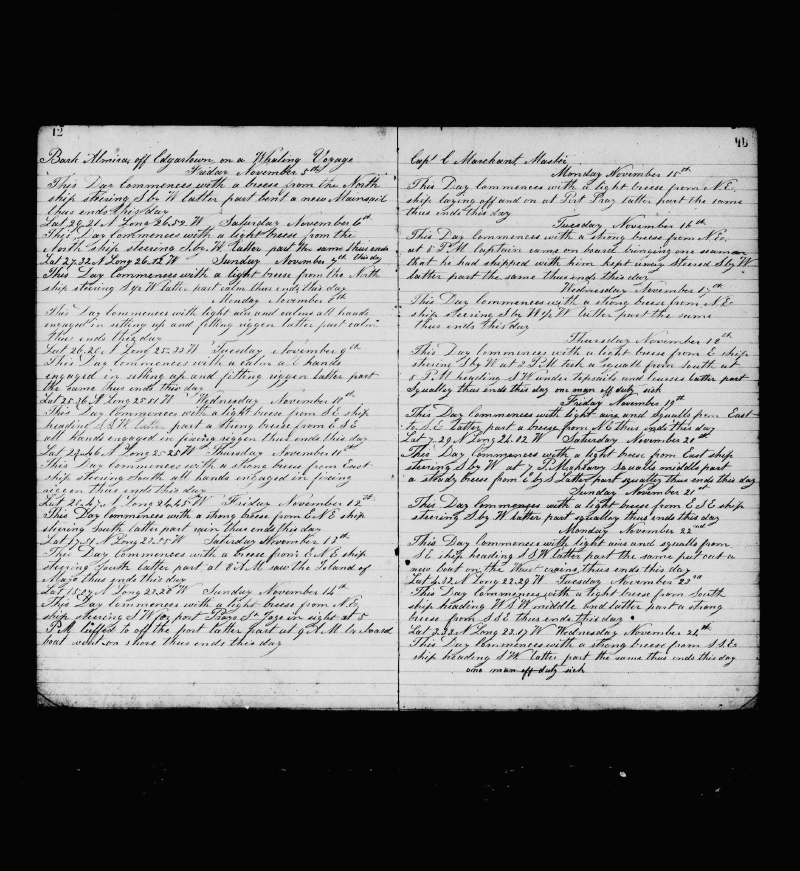 12
Bark Almira, off Edgartown on a Whaling Voyage
Friday November 5th
This Day Commences with a breese from the North
ship steering S by W latter part bent a new Mainsail
thus ends this day
Lat 29.21 N Long 26.52 W Saturday November 6th
This Day Commences with a light breese from the
North ship steering S by W latter part the same thus ends
this day
Lat 27.32 N Long 26.32 W Sunday November 7th
This Day Commences with a light breese from the North
ship steering S by W latter part calm thus ends this day
Monday November 8th
This Day Commences with light airs and calms all hands
engaged in setting up and fitting riggen latter part calm
thus ends this day
Lat 26.20 N Long 25.33 W Tuesday November 9th
This Day Commences with a calm all hands
engaged in setting up and fitting riggen latter part
the same thus ends this day
Lat 25.36 N Long 25.51 W Wednesday November 10th
This Day Commences with a light breese from S E ship
heading S S W latter part a strong breese from E S E
all hands engaged in fixing riggen thus ends this day
Lat 23.46 N Long 25.25 W Thursday November 11th
This Day Commences with a strong breese from East
ship steering South all hands engaged in fixing
riggen thus ends this day
Lat 20.47 N Long 24.45 W Friday November 12th
This Day Commences with a strong breese from E N E ship
steering South latter part rain thus ends this day
Lat 17.51 N Long 23.55 W Saturday November 13th
This Day Commences with a breese from E N E ship
steering South latter part at 8 A M saw the Island of
Mayo thus ends this day
Lat 15.07 N Long 23.28 W Sunday November 14th
This Day Commences with a light breese from N E
ship steering S W for port Praya St Jago in sight at 5
P M luffed to off the port latter part at 9 A M larboard
boat went on shore thus ends this day
Capt C Marchant Master
Monday November 15th
This Day Commences with a light breese from N E
ship laying off and on at Port Pray latter part the same
thus ends this day
Tuesday November 16th
This Day Commences with a strong breese from N E
at 5 P M Captain came on board bringing one seaman
that he had shipped with him kept away Steered S by W
latter part the same thus ends this day
Wednesday November 17th
This Day Commences with a strong breese from N E
ship steering S by W ½ W latter part the same
thus ends this day
Thursday November 18th
This Day Commences with a light breese from E ship
steering S by W at 2 P M took a squall from South at
5 P M heading S W under topsails and courses latter part
squally thus ends this day one man off duty sick
Friday November 19th
This Day Commences with light airs and squalls from East
to S E latter part a breese from N E thus ends this day
Lat 7.29 N Long 24.12 W Saturday November 20st
This Day Commences with a light breese from East ship
steering S by W at 7 P M heavy squalls middle part
a steady breese from E by S latter part squally thus ends this day
Sunday November 21st
This Day Commences with a light breese from E S E ship
steering S by W latter part squally thus ends this day
Monday November 22nd
This Day Commences with light airs and squalls from
S E ship heading S S W latter part the same put out a
new boat on the waist craine thus ends this day
Lat 4.32 N Long 22.29 W Tuesday November 23rd
This Day Commences with a light breese from South
ship heading W S W middle and latter part a strong
breese from S S E thus ends this day
Lat 3.33 N Long 23.17 W Wednesday November 24th
This Day Commences with a strong breese from S S E
ship heading S W latter part the same thus ends this day
one man off duty sick